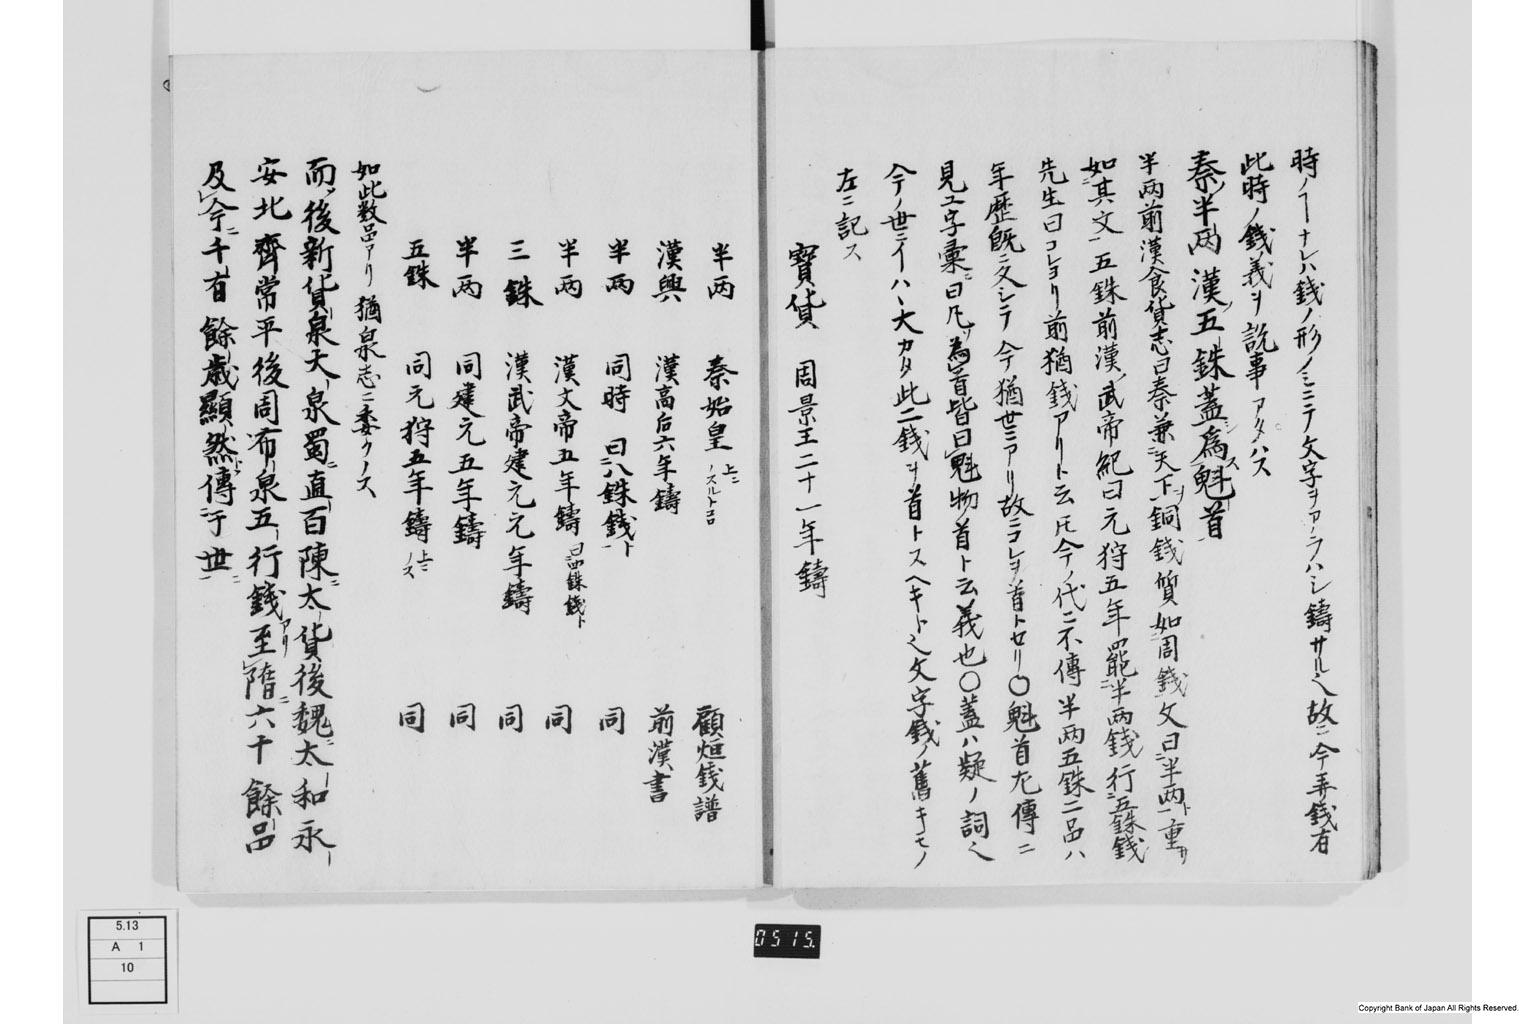 時ノヿナレハ銭ノ形ノミニテ文字ヲアラハシ鑄サル也故ニ今弄銭有
此時ノ錢義ヲ説事アタハス
秦ノ半両漢ノ五銖蓋為魁首
半両前漢食貨志曰秦兼天下銅銭質如周錢文曰半両重サ
如其文一五銖前漢武帝紀曰元狩五年罷半両錢行五銖錢
先生曰コレヨリ前猶錢アリト云𪜈今ノ代ニ不傳半両五銖二品ハ
年歴既ニ久シテ今猶世ニアリ故ニコレヲ首トセリ〇魁首左傳ニ
見ユ字彙ニ曰凡為首皆曰魁物首ト云義也〇蓋ハ疑ノ詞也
今ノ世ニイハヽ大カタ此二錢ヲ首トスヘキト也文字錢ノ舊キモノ
左ニ記ス
寳貨 周景王二十一年鑄
半両 秦始皇 上ニノスルトコロ 顧烜錢譜
漢興 漢高后六年鑄 前漢書
半両 同時 曰八銖錢ト 同
半両 漢文帝五年鑄 曰四銖錢ト 同
三銖 漢武帝建元元年鑄 同
半両 同建元五年鑄 同
五銖 同元狩五年鑄 上ニノス 同
如此数品アリ猶泉志ニ委クノス
而後新貨泉大泉蜀直百陳太貨後魏太和永
安北齊常平後周布泉五行錢至隋六十餘品
及今千有餘歳顯然傳于世
5.13
A 1
10
0515.
Copyright Bank of Japan All Rights Reserved.